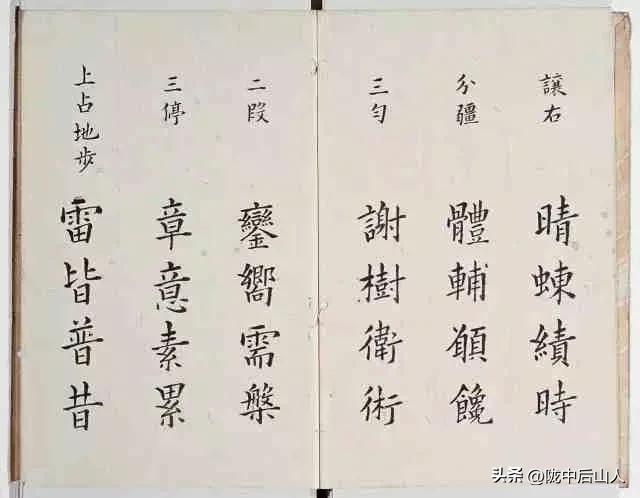 讓右
晴蝀績時
分疆
體輔饞
三勻
謝樹衛術
二段
鑾嚮需槃
三停
章意素累
上占地步
雷皆普昔
头条 @陇中后山人